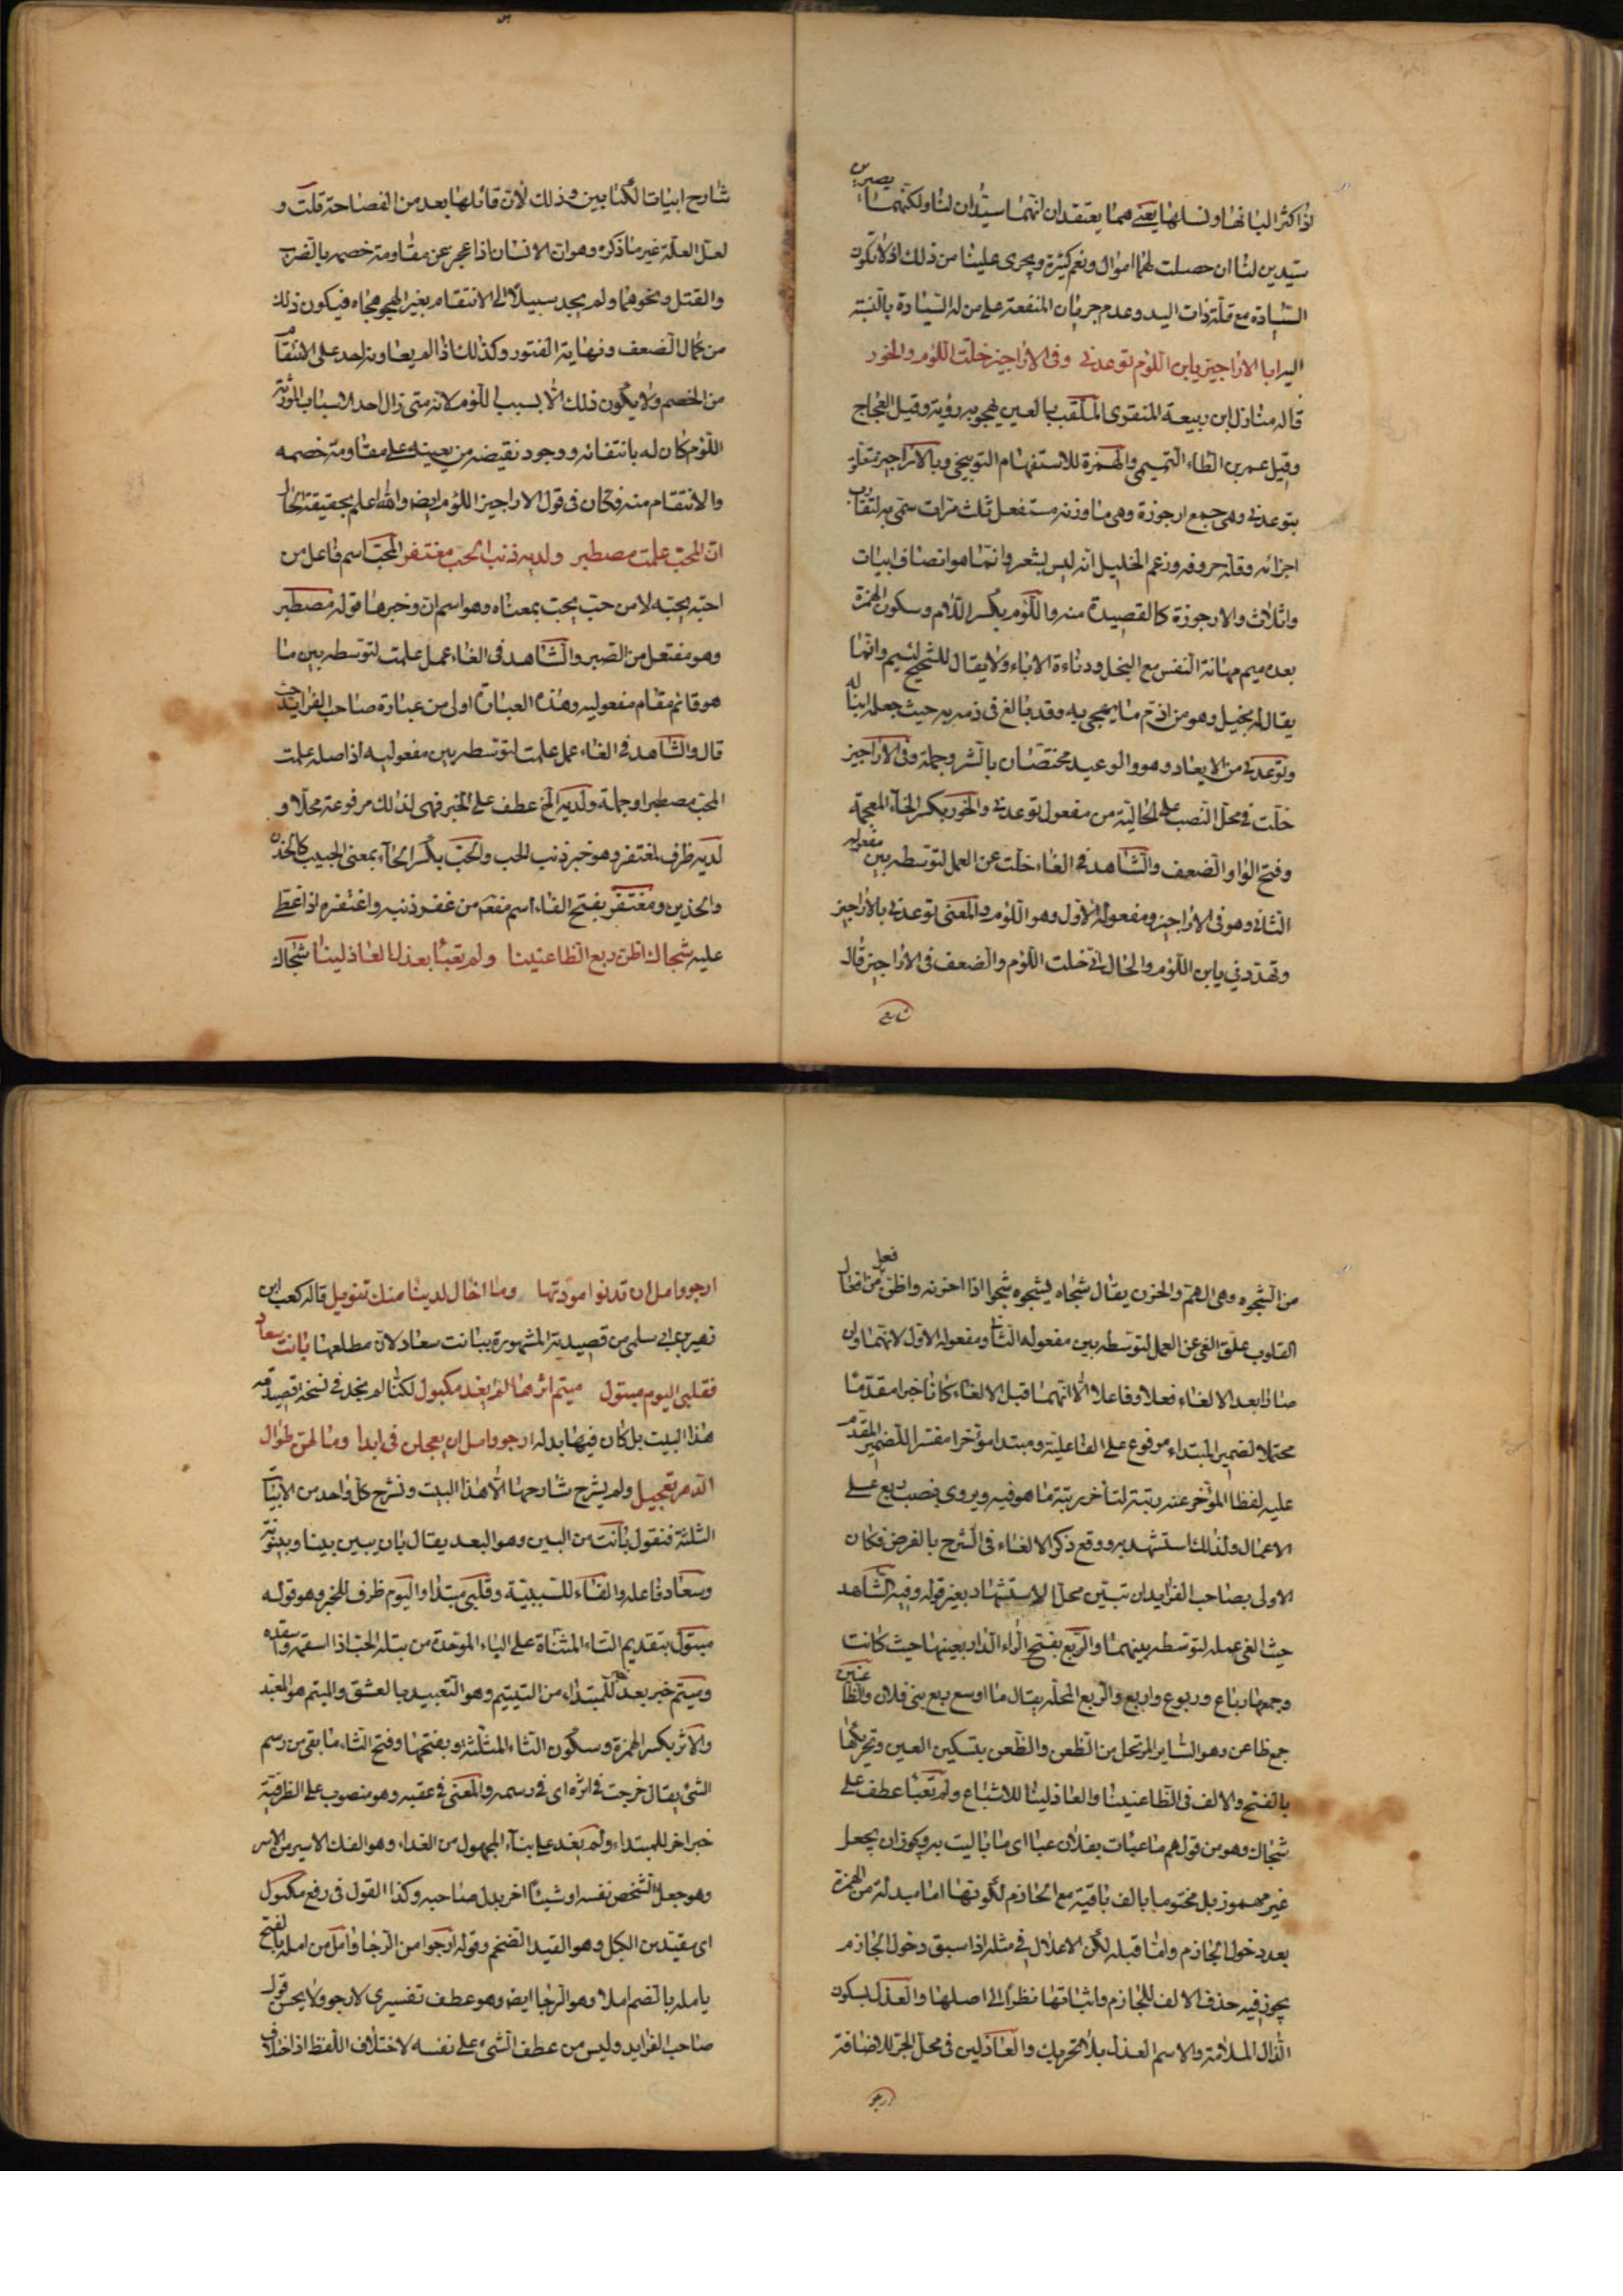 اذا كثر البانها ونسلها يعنى هما يعتقدان انهما سيدان لنا ولكنهما يصيران
سيدين لنا ان حصلت لهما اموال ونعم كثيرة ويجرى علينا من ذلك اذ لا تكون
السيادة مع قلة ذات اليد وعدم جريان المنفعة على من له السيادة بالنسبة
اليه ابا الاراجيز يابن اللؤم توعدنى وفى الاراجيز خلت اللؤم والخور
قاله منازل ابن ربيعة المنقرى الملقب بالعين يهجو به رؤبة وقيل العجاج
وقيل عمر بن التميمى والهمزة للاستفهام التوبيخى وبالاراجيز متعلق
بتوعدنى وهى جمع ارجوزة وهى ما وزنه مستفعل ثلث مرات سمى به لتقارب
اجزائه وقلة حروفه وزعم الخليل انه ليس بشعر وانما هو انصاف ابيات
واثلاث والارجوزة كالقصيدة منه واللؤم بكسر اللام وسكون الهمزة
بعده ميم مهانة النفس مع البخل ودناءة الاباء ولا يقال للشحيح لئيم وانما
يقال له بخيل وهو من اذم ما يهجى به وقد بالغ فى ذمه به حيث جعله ابنا له
وتوعدنى من الايعاد وهو والوعيد مختصان بالشر وجملة وفى الاراجيز
خلت فى محل النصب على الحالية من مفعول توعدنى والخور بكسر الخاء المعجمة
وفتح الواو الضعف والشاهد فى الغاء خلت عن العمل لتوسطه بين مفعوليه
الثانى وهو فى الاراجيز ومفعوله الاول وهو اللؤم والمعنى توعدنى بالاراجيز
وتهددنى يابن اللؤم والحال انى خلت اللؤم والضعف فى الاراجيز قال
شارح
شارح ابيات الكتابين وذلك لان قائلها بعد من الفصاحة قلت و
لعل العلة غير ما ذكره وهو ان الانسان اذا عجز عن مقاومة خصمه بالضرب
والقتل ونحوهما ولم يجد سبيلا الى الانتقام بغير الهجو هجاه فيكون ذلك
من كمال الضعف ونهاية الفتور وكذلك اذا لم يعاونه احد على الانتقام
من الخصم ولا يكون ذلك الا بسبب اللؤم لانه متى زال احد الاسباب المورثة
اللؤم كان له بانتفائه ووجود نقيضه من يعينه على مقاومة خصمه
والانتقام منه فكان فى قول الاراجيز اللؤم ايضا والله اعلم بحقيقة الحال
ان المحب علمت مصطبر ولديه ذنب الحب مغتفر المحب اسم فاعل من
احبه يحبه لا من حب يحب بمعناه وهو اسم ان وخبرها قوله مصطبر
وهو مفتعل من الصبر والشاهد فى الغاء عمل علمت لتوسطه بين ما
هو قائم مقام مفعوليه وهذه العبارة اولى من عبارة صاحب الفرايد حيث
قال والشاهد فى الغاء عمل علمت لتوسطه بين مفعوليه اذ اصله علمت
المحب مصطبرا وجملة ولديه الخ عطف على الخبر فهى لذلك مرفوعة محلا و
لديه ظرف لمغتفر وهو خبر ذنب الحب والحب بكسر الحاء بمعنى الحبيب كالخدن
والخدين ومغتفر بفتح الفاء اسم مفعول من غفر ذنبه واغتفره اذا غطى
عليه شجاك اظن ربع الظاعنينا ولم تعبأ بعذل العاذلينا شجاك
من الشجو وهى الهم والحزن يقال شجاه يشجوه شجوا اذا احزنه واظن فعل من افعال
القلوب علق الغى عن العمل لتوسطه بين مفعوله الثانى ومفعوله الاول لانهما وان
صارا بعد الالغاء فعلا وفاعلا الا انهما قبل الالغاء كانا خبرا مقدما
محتملا لضمير المبتداء مرفوع على الفاعلية ومبتدا مؤخرا مفسرا للضمير المقدم
عليه لفظا المؤخر عنه رتبة لتاخر رتبة ما هو فيه ويروى بنصب ربع على
الاعمال ولذلك استشهد به ووقع ذكر الالغاء فى الشرح بالفرض فكان
الاولى بصاحب الفرايد ان تبين محل الاستشهاد بغير قوله وفيه الشاهد
حيث الغى عمله لتوسطه بينهما والربع بفتح الراء الدار بعينها حيث كانت
وجمعها رباع وربوع واربع والربع المحلة يقال ما اوسع ربع بنى فلان والظاعنين
جمع ظاعن وهو الساير المرتحل من الظعن والظعن بتسكين العين وتحريكها
بالفتح والالف فى الظاعنينا والعاذلينا للاشباع ولم تعبأ عطف على
شجاك وهو من قولهم ما عبات بفلان عبا اى ما باليت به ويجوز ان يجعل
غير مهموز بل مختوما بالف باقية مع الجازم لكونها اما مبدلة من الهمزة
بعد دخول الجازم واما قبله لكن الاعلال فى مثله اذا سبق دخول الجازم
يجوز فيه حذف الالف للجازم واثباتها نظرا الى اصلها والعذل بسكون
الذال الملامة والاسم العذل بالتحريك والعاذلين فى محل الجر للاضافة
ارجو
ارجو وامل ان تدنو مودتها وما اخال لدينا منك تنويل قاله كعب ابن
زهير بن ابى سلمى من قصيدته المشهورة ببانت سعاد لان مطلعها بانت سعاد
فقلبى اليوم متبول متيم اثرها لم يفد مكبول لكنا لم نجد فى نسخ قصيدته
هذا البيت بل كان فيها بدله ارجو وامل ان يعجلن فى ابدا وما لهن طوال
الدهر تعجيل ولم يشرح شارحها الا هذا البيت ونشرح كل واحد من الابيات
الثلثة فنقول بانت من البين وهو البعد يقال بان يبين بينا وبينونة
وسعاد فاعله والفاء للسببية وقلبى مبتدا واليوم ظرف للخبر وهو قوله
متبول بتقديم التاء المثناة على الباء الموحدة من تبله الحب اذا اسقمه
ومتيم خبر بعد للمبتداء من التتييم وهو التعبيد بالعشق والمتيم هو المعبد
والاثر بكسر الهمزة وسكون الثاء المثلثة وبفتحها وفتح الثاء ما بقى من رسم
الشئ يقال خرجت فى اثره اى فى رسمه والمعنى فى عقبه وهو منصوب على الظرفية
خبر اخر للمبتداء ولم يفد على بناء المجهول من الفداء وهو الفك الاسير من الاسر
وهو جعل الشخص نفسه او شيئا اخر بدل صاحبه وكذا القول فى رفع مكبول
اى مقيد من الكبل وهو القيد الضخم وقوله ارجو من الرجا وامل من امله بالفتح
يامله بالضم املا وهو الرجا ايضا وهو عطف تفسيرى لارجو ولا يحسن قول
صاحب الفرايد وليس من عطف الشئ على نفسه لاختلاف اللفظ اذ اختلاف